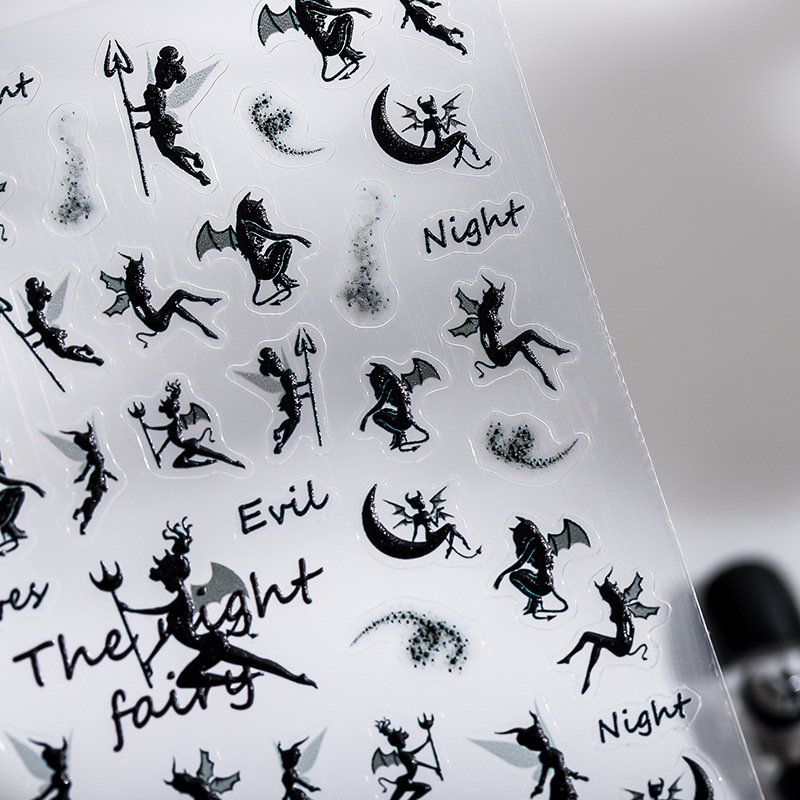 Night
Evil
The night
fairy
Night